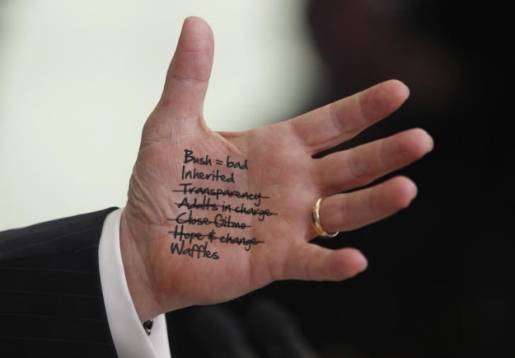 Bush = bad
Inherited
Transparency
Adults in charge
Close Gitmo
Hope & change
Waffles